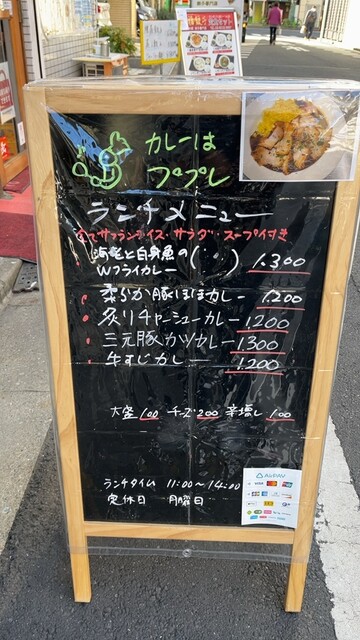 カレーは
ププレ
ランチメニュー
全てサフランライス・サラダ・スープ付き
・海老と白身魚の
Wフライカレー 1.300
・柔らか豚ほほカレー 1.200
・炙りチャーシューカレー 1.200
・三元豚カツカレー 1.300
・牛すじカレー 1.200
大盛 100 チーズ 200 辛増し 100
ランチタイム 11:00〜14:00
定休日 月曜日
AirPAY
VISA